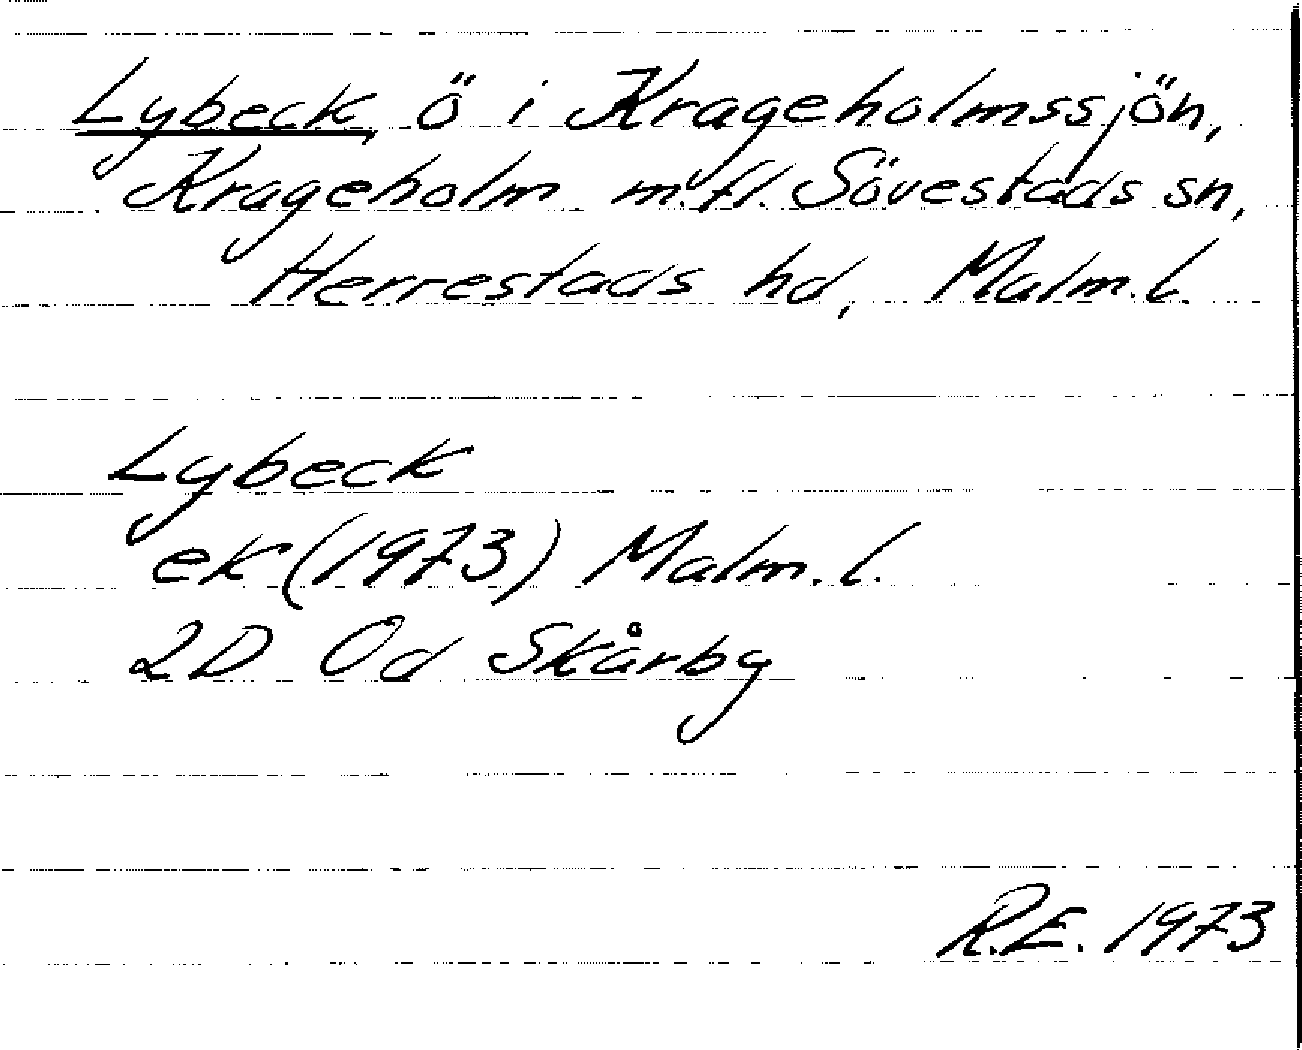 Lybeck, ö i Krageholmssjön,
Krageholm m.fl. Sövestads sn,
Herrestads hd, Malm.l.
Lybeck
ek (1973) Malm.l.
2D Od Skårby
R.E. 1973